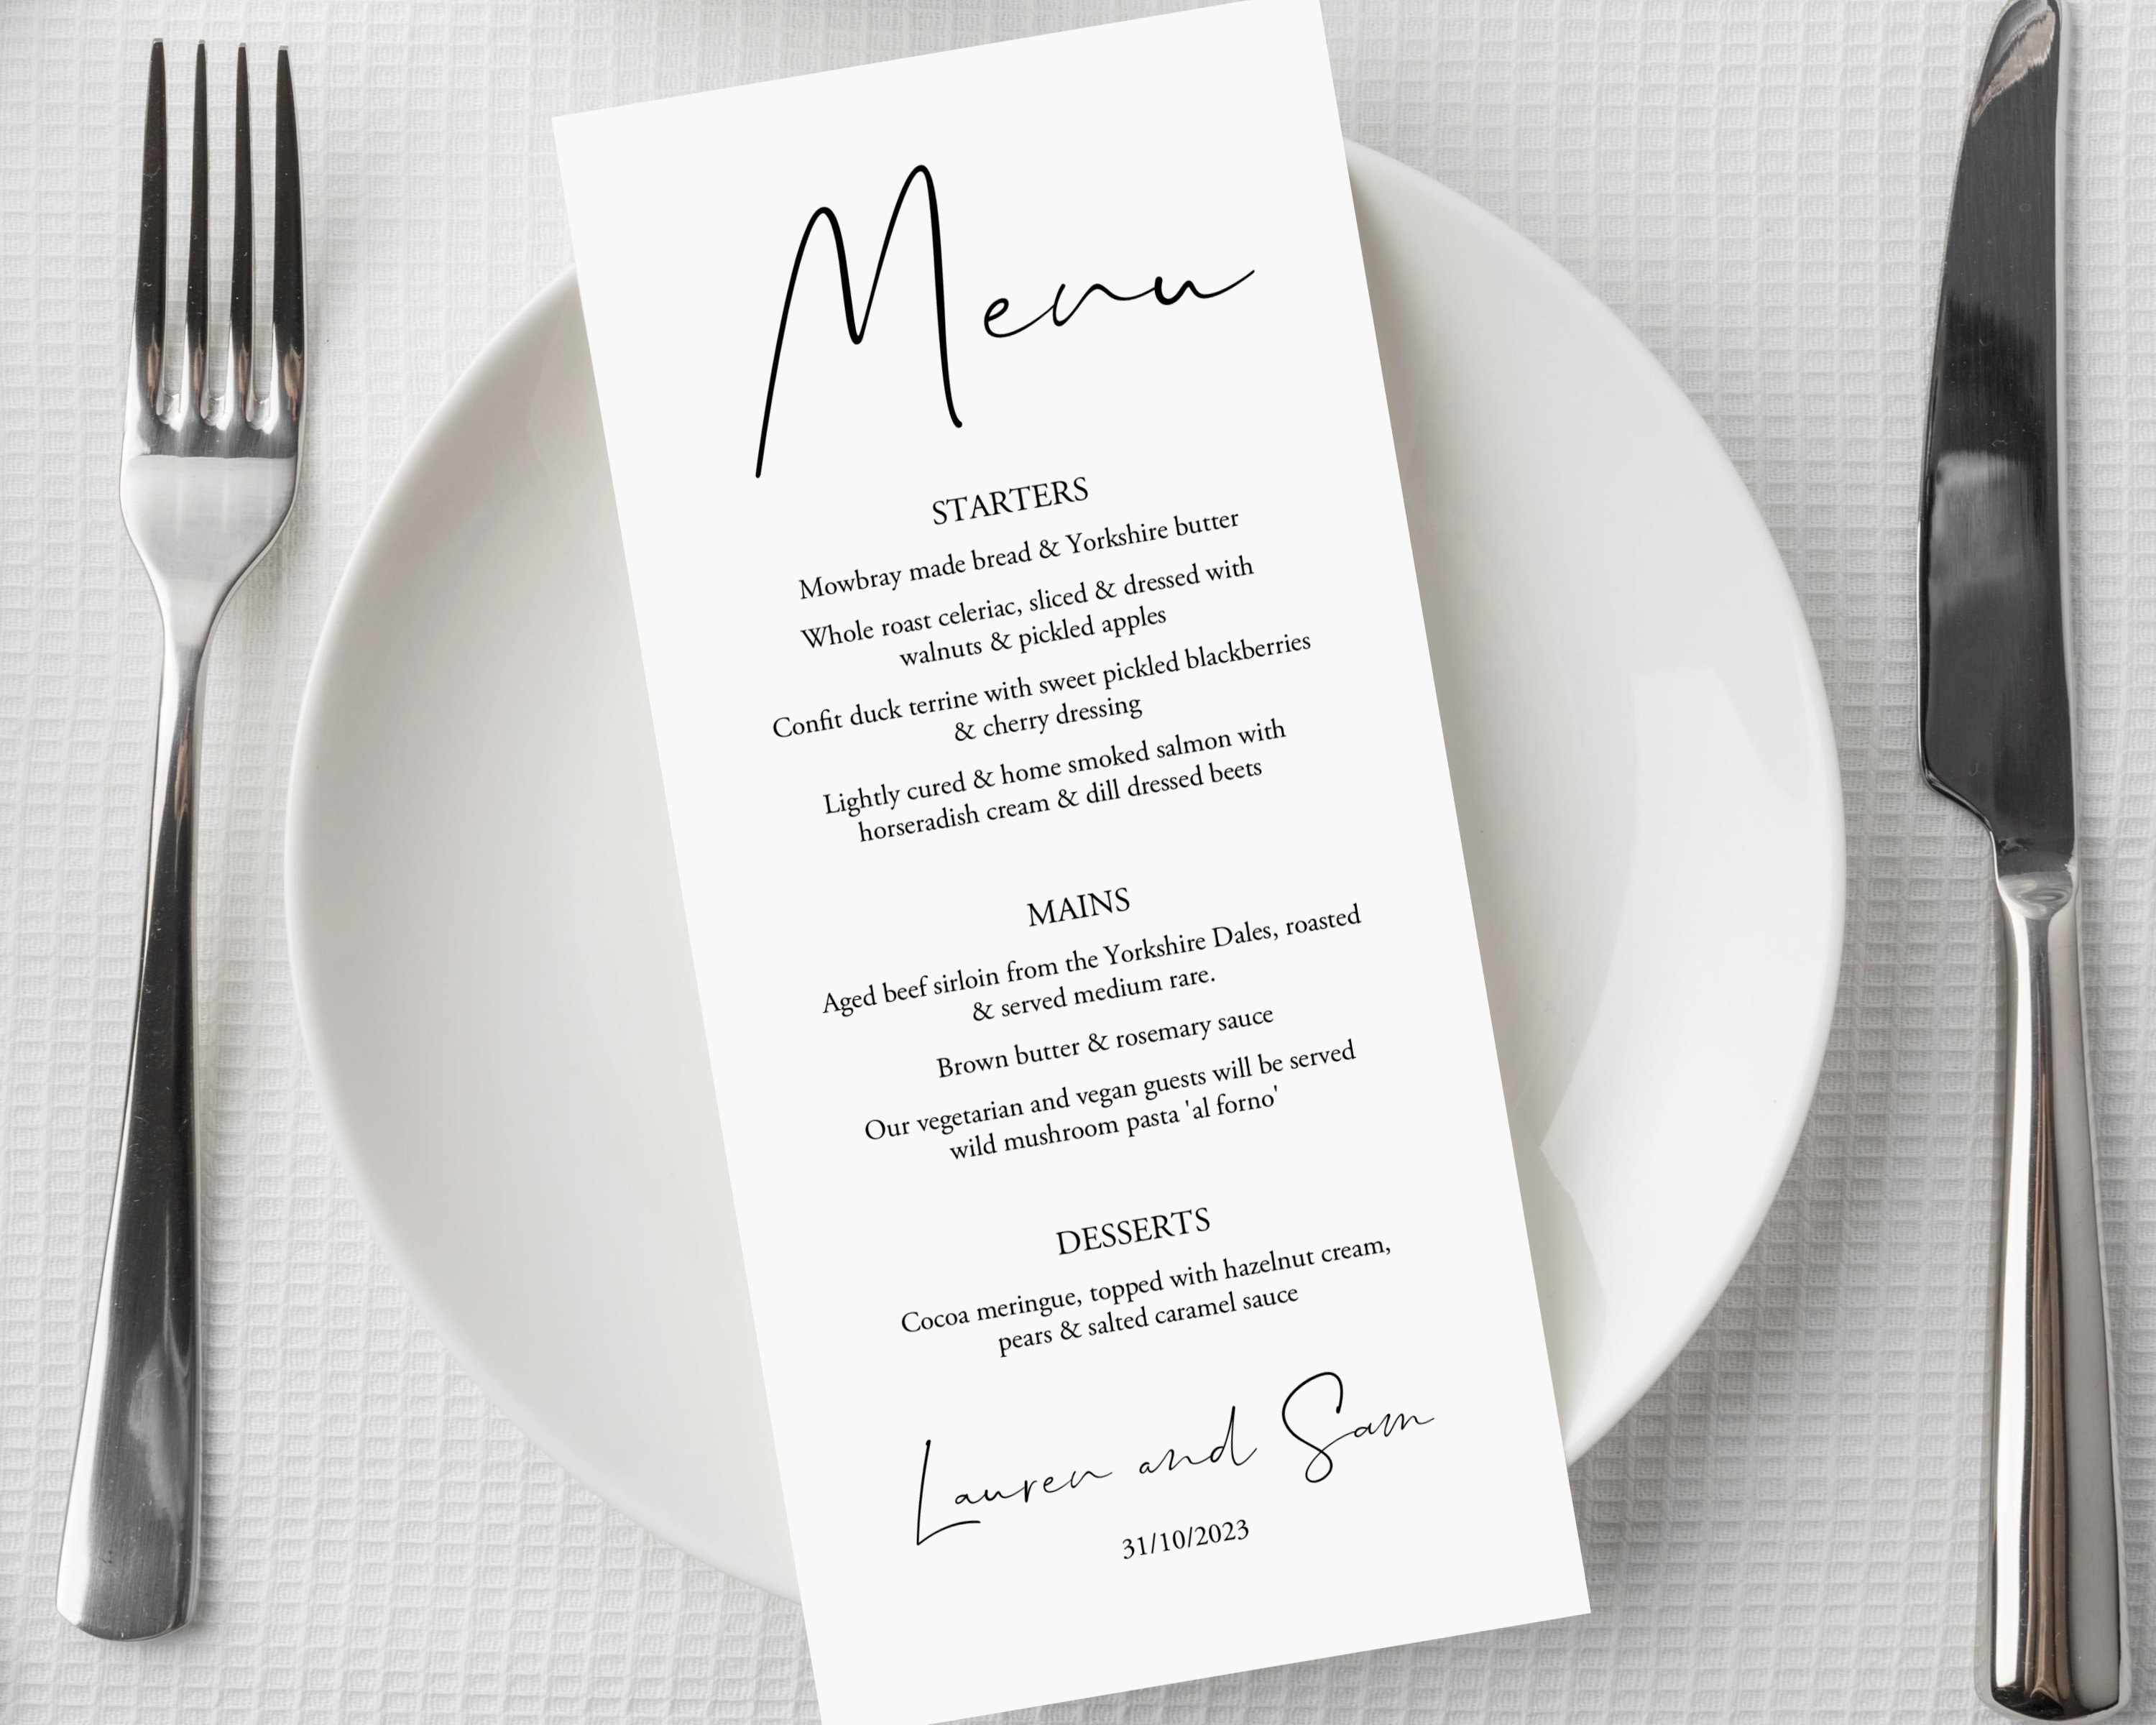 Menu
STARTERS
Mowbray made bread & Yorkshire butter
Whole roast celeriac, sliced & dressed with
walnuts & pickled apples
Confit duck terrine with sweet pickled blackberries
& cherry dressing
Lightly cured & home smoked salmon with
horseradish cream & dill dressed beets
MAINS
Aged beef sirloin from the Yorkshire Dales, roasted
& served medium rare.
Brown butter & rosemary sauce
Our vegetarian and vegan guests will be served
wild mushroom pasta 'al forno'
DESSERTS
Cocoa meringue, topped with hazelnut cream,
pears & salted caramel sauce
Lauren and Sam
31/10/2023